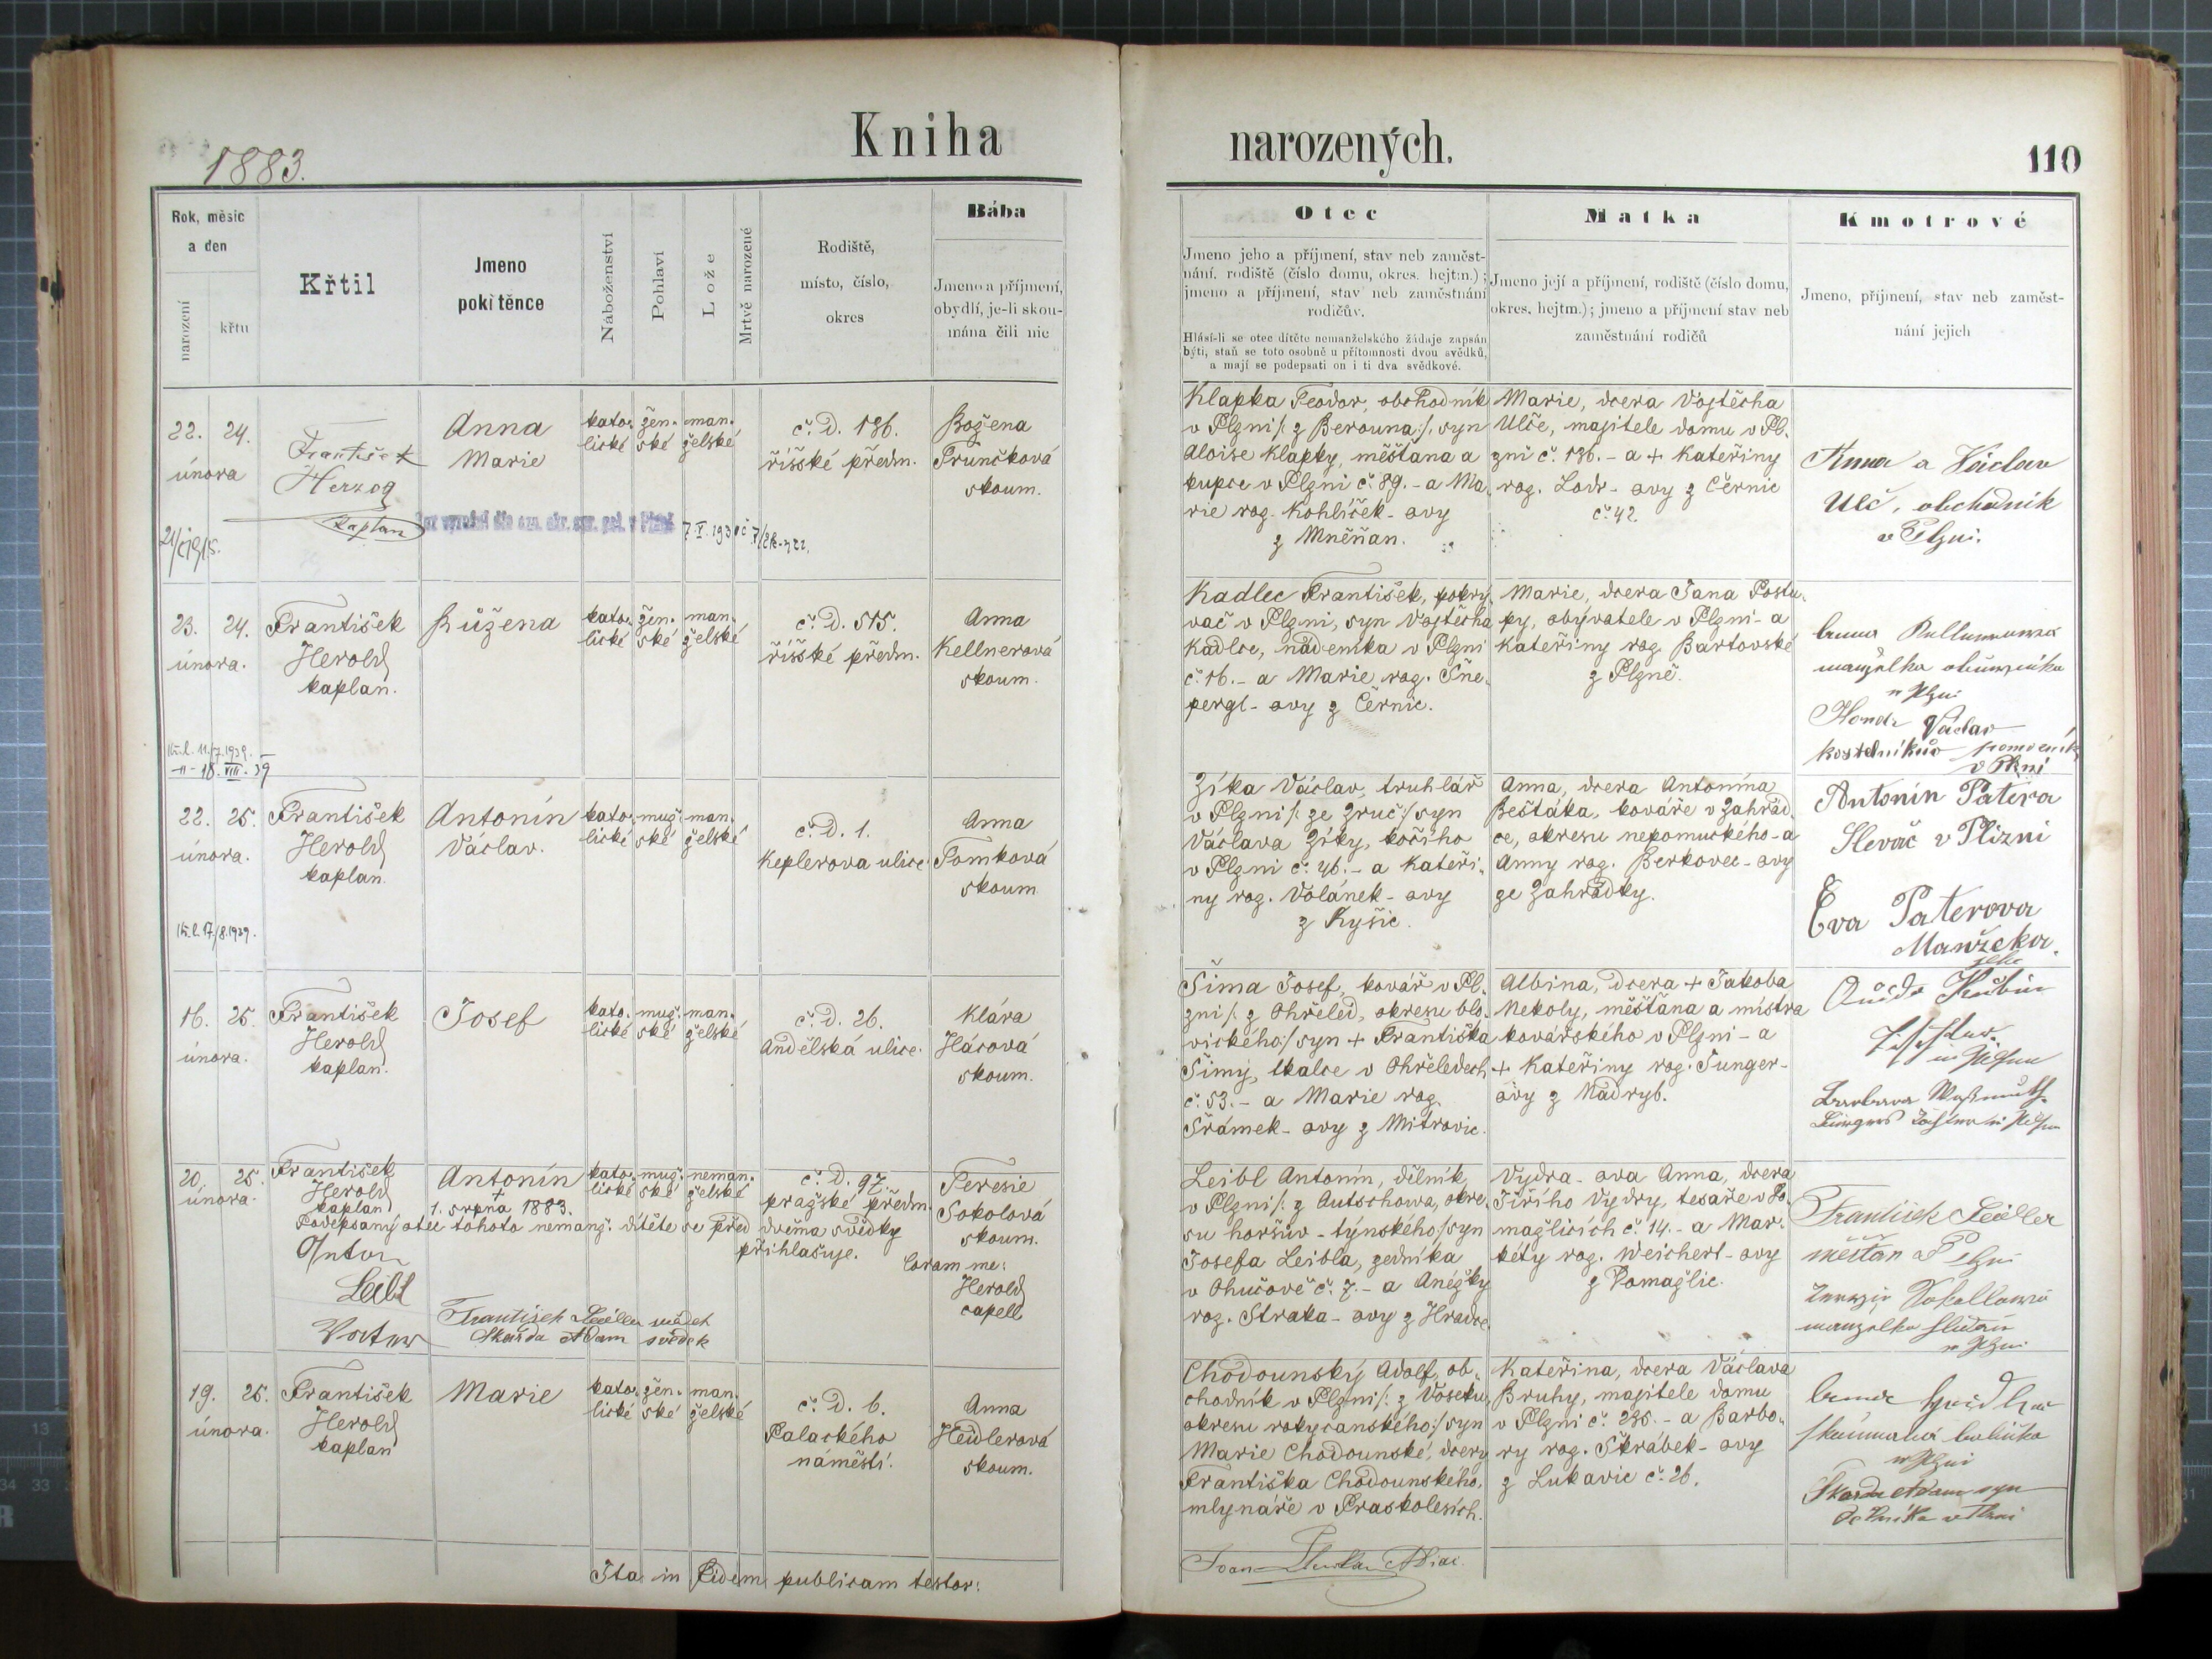 Kniha narozených.
1883.
110
Rok, měsíc
a den
narození
křtu
Křtil
Jmeno
pokřtěnce
Náboženství
Pohlaví
Lože
Mrtvě narozené
Rodiště,
místo, číslo,
okres
Bába
Jmeno a příjmení,
obydlí, je-li skou-
mána čili nic
Otec
Jmeno jeho a příjmení, stav neb zaměst-
nání, rodiště (číslo domu, okres. hejtm.);
jmeno a příjmení, stav neb zaměstnání
rodičův.
Hlásí-li se otec dítěte nemanželského žádaje zapsán
býti, staň se toto osobně u přítomnosti dvou svědků,
a mají se podepsati on i ti dva svědkové.
Matka
Jmeno její a příjmení, rodiště (číslo domu,
okres. hejtm.); jmeno a příjmení stav neb
zaměstnání rodičů
Kmotrové
Jmeno, příjmení, stav neb zaměst-
nání jejich
22. 24.
února
František
Herzog
kaplan
Anna
Marie
kato-
lické
žen-
ské
man-
želské
č. d. 136.
říšské předm.
Božena
Trunčková
skoum.
Klapka Teodor, obchodník
v Plzni /: z Berouna :/, syn
Aloise Klapky, měšťana a
kupce v Plzni č. 89. - a Ma-
rie roz. Kohlíček- ovy
z Mněňan.
Marie, dcera Vojtěcha
Ulče, majitele domu v Pl-
zni č. 136. - a + Kateřiny
roz. Lodr- ovy z Černic
č. 42.
Anna a Václav
Ulč, obchodník
v Plzni.
23. 24.
února.
František
Herold
kaplan.
Růžena
kato-
lické
žen-
ské
man-
želské
č. d. 515.
říšské předm.
Anna
Kellnerová
skoum.
Kadlec František, pokrý-
vač v Plzni, syn Vojtěcha
Kadlce, nádeníka v Plzni
č. 16. - a Marie roz. Šne-
pergl- ovy z Černic.
Marie, dcera Jana Postu-
py, obyvatele v Plzni - a
Kateřiny roz. Bartovské
z Plzně.
manželka obuvníka
v Plzni
Václav
v Plzni
11./7.1939.
-11- 18. VIII. 39
22. 25.
února.
František
Herold
kaplan.
Antonín
Václav.
kato-
lické
muž-
ské
man-
želské
č. d. 1.
Keplerova ulice.
Anna
Tomková
skoum.
Zíka Václav, truhlář
v Plzni /: ze Zruč :/ syn
Václava Zíky, kočího
v Plzni č. 46. - a Kateři-
ny roz. Volánek- ovy
z Kyšic.
Anna, dcera Antonína
Bešťáka, kováře v Zahrád-
ce, okresu nepomuckého - a
Anny roz. Berkovec- ovy
ze Zahrádky.
Antonín Patera
Slevač v Plizni
Eva Paterova
Manželka
jeho
17/8.1939.
16. 25.
února.
František
Herold
kaplan.
Josef
kato-
lické
muž-
ské
man-
želské
č. d. 26.
Andělská ulice.
Klára
Hácová
skoum.
Šíma Josef, kovář v Pl-
zni /: z Ohřeled, okresu blo-
vického :/ syn + Františka
Šímy, tkalce v Ohřeledech
č. 53. - a Marie roz.
Šrámek- ovy z Mitrovic.
Albina, dcera + Jakoba
Nekoly, měšťana a mistra
kovářského v Plzni - a
+ Kateřiny roz. Junger-
ovy z Nadryb.
Barbara
20. 25.
února.
František
Herold
kaplan
Antonín
+
1. srpna 1883.
kato-
lické
muž-
ské
neman-
želské
č. d. 97.
pražské předm.
Teresie
Sokolová
skoum.
Podepsaný otec tohoto nemanž. dítěte se před dvěma svědky
přihlašuje.
Anton
Leibl
František Seidler svědek
Skarda Adam svědek
Coram me:
Herold
capell
Leibl Antonín, dělník
v Plzni /: z Autschowa, okre-
su horšův-týnského :/ syn
Josefa Leibla, zedníka
v Ohučově č. 7. - a Anéžky
roz. Straka- ovy z Hradce.
Vydra- ova Anna, dcera
Jiřího Vydry, tesaře v Do-
mažlicích č. 14. - a Mar-
kéty roz. Weichert- ovy
z Domažlic.
František Seidler
měšťan v Plzni
manželka
v Plzni
19. 25.
února.
František
Herold
kaplan
Marie
kato-
lické
žen-
ské
man-
želské
č. d. 6.
Palackého
náměstí.
Anna
Heidlerová
skoum.
Chodounský Adolf, ob-
chodník v Plzni /: z Voseku,
okresu rokycanského :/ syn
Marie Chodounské, dcery
Františka Chodounského,
mlynáře v Praskolesích.
Kateřina, dcera Václava
Bruhy, majitele domu
v Plzni č. 235. - a Barbo-
ry roz. Škrábek- ovy
z Lukavic č. 26.
v Plzni
Skarda Adam syn
v Plzni
Ita in fidem publicam testor: